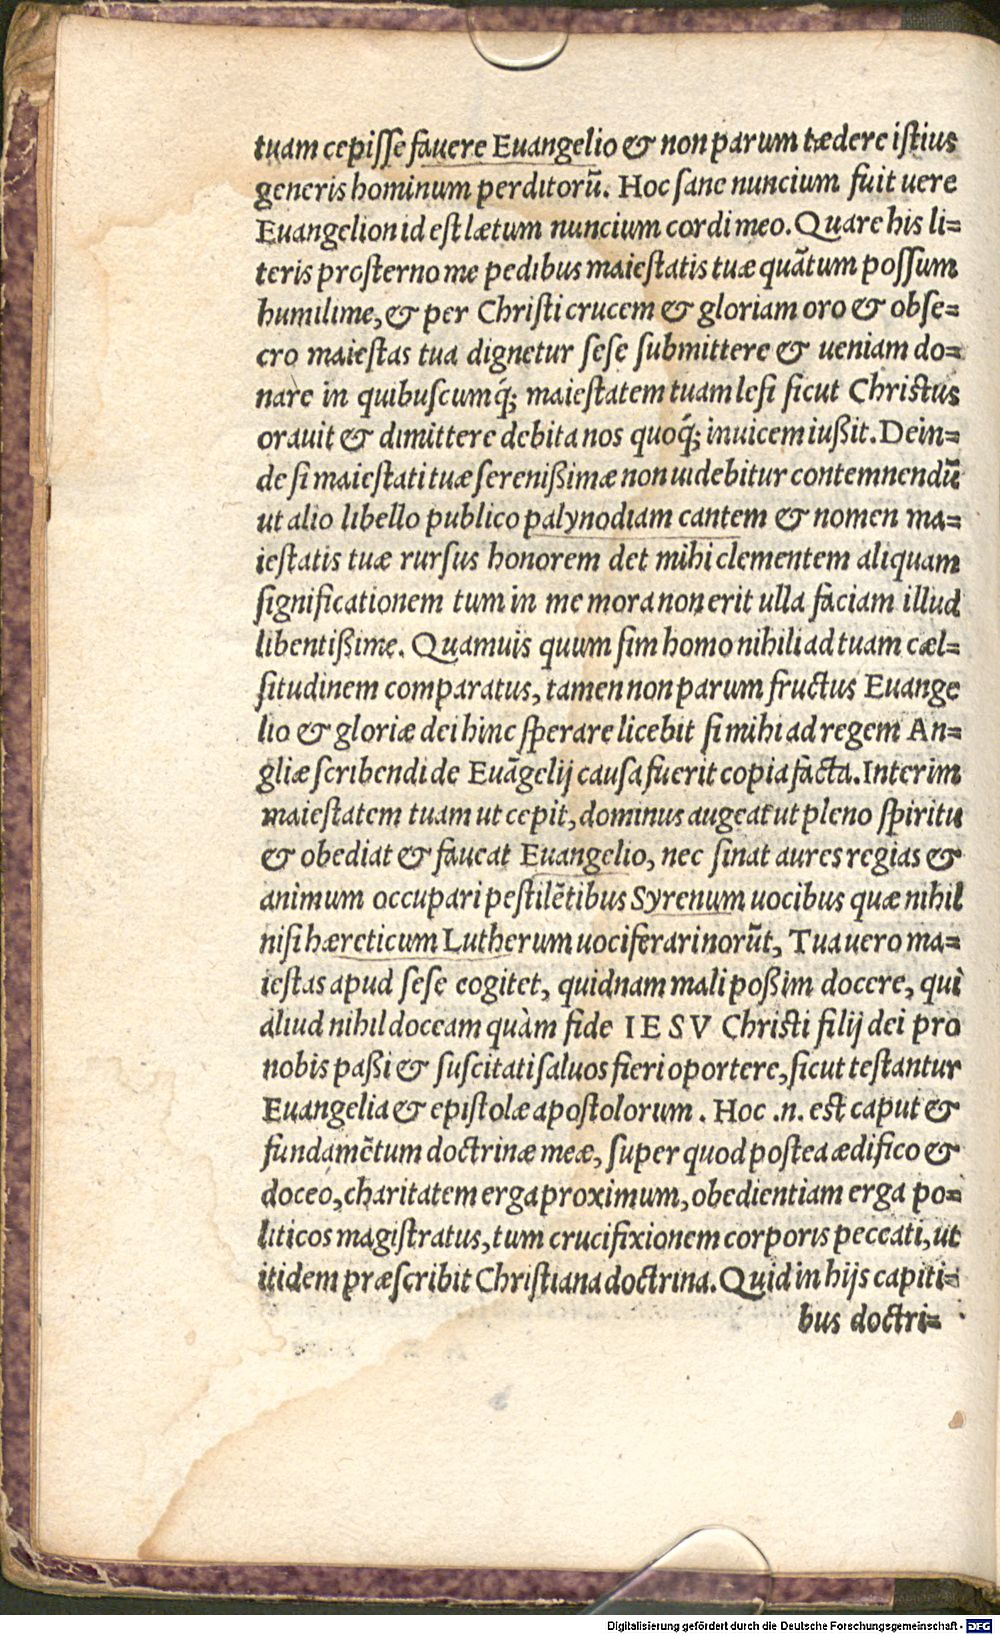 tuam cepiſſe fauere Euangelio & non parum tædere iſtius
generis hominum perditorũ. Hoc ſane nuncium fuit uere
Euangelion id eſt lætum nuncium cordi meo. Quare his li=
teris proſterno me pedibus maieſtatis tuæ quãtum poſſum
humilime, & per Chriſti crucem & gloriam oro & obſe=
cro maieſtas tua dignetur ſeſe ſubmittere & ueniam do=
nare in quibuſcumq́; maieſtatem tuam leſi ſicut Chriſtus
orauit & dimittere debita nos quoq́; inuicem iußit. Dein=
de ſi maieſtati tuæ ſerenißimæ non uidebitur contemnendũ
ut alio libello publico palynodiam cantem & nomen ma=
ieſtatis tuæ rurſus honorem det mihi clementem aliquam
ſignificationem tum in me mora non erit ulla faciam illud
libentißime. Quamuis quum ſim homo nihili ad tuam cæl=
ſitudinem comparatus, tamen non parum fructus Euange
lio & gloriæ dei hinc ſperare licebit ſi mihi ad regem An=
gliæ ſcribendi de Euãgelij cauſa fuerit copia facta. Interim
maieſtatem tuam ut cepit, dominus augeat ut pleno ſpiritu
& obediat & faueat Euangelio, nec ſinat aures regias &
animum occupari peſtilẽtibus Syrenum uocibus quæ nihil
niſi hæreticum Lutherum uociferari norũt, Tua uero ma=
ieſtas apud ſeſe cogitet, quidnam mali poßim docere, qui
aliud nihil doceam quàm fide IESV Chriſti filij dei pro
nobis paßi & suscitati ſaluos fieri oportere, ſicut teſtantur
Euangelia & epiſtolæ apoſtolorum. Hoc .n. eſt caput &
fundamẽtum doctrinæ meæ, ſuper quod poſtea ædifico &
doceo, charitatem erga proximum, obedientiam erga po=
liticos magiſtratus, tum crucifixionem corporis peccati, ut
itidem præſcribit Chriſtiana doctrina. Quid in hijs capiti=
bus doctri=
Digitalisierung gefördert durch die Deutsche Forschungsgemeinschaft - DFG